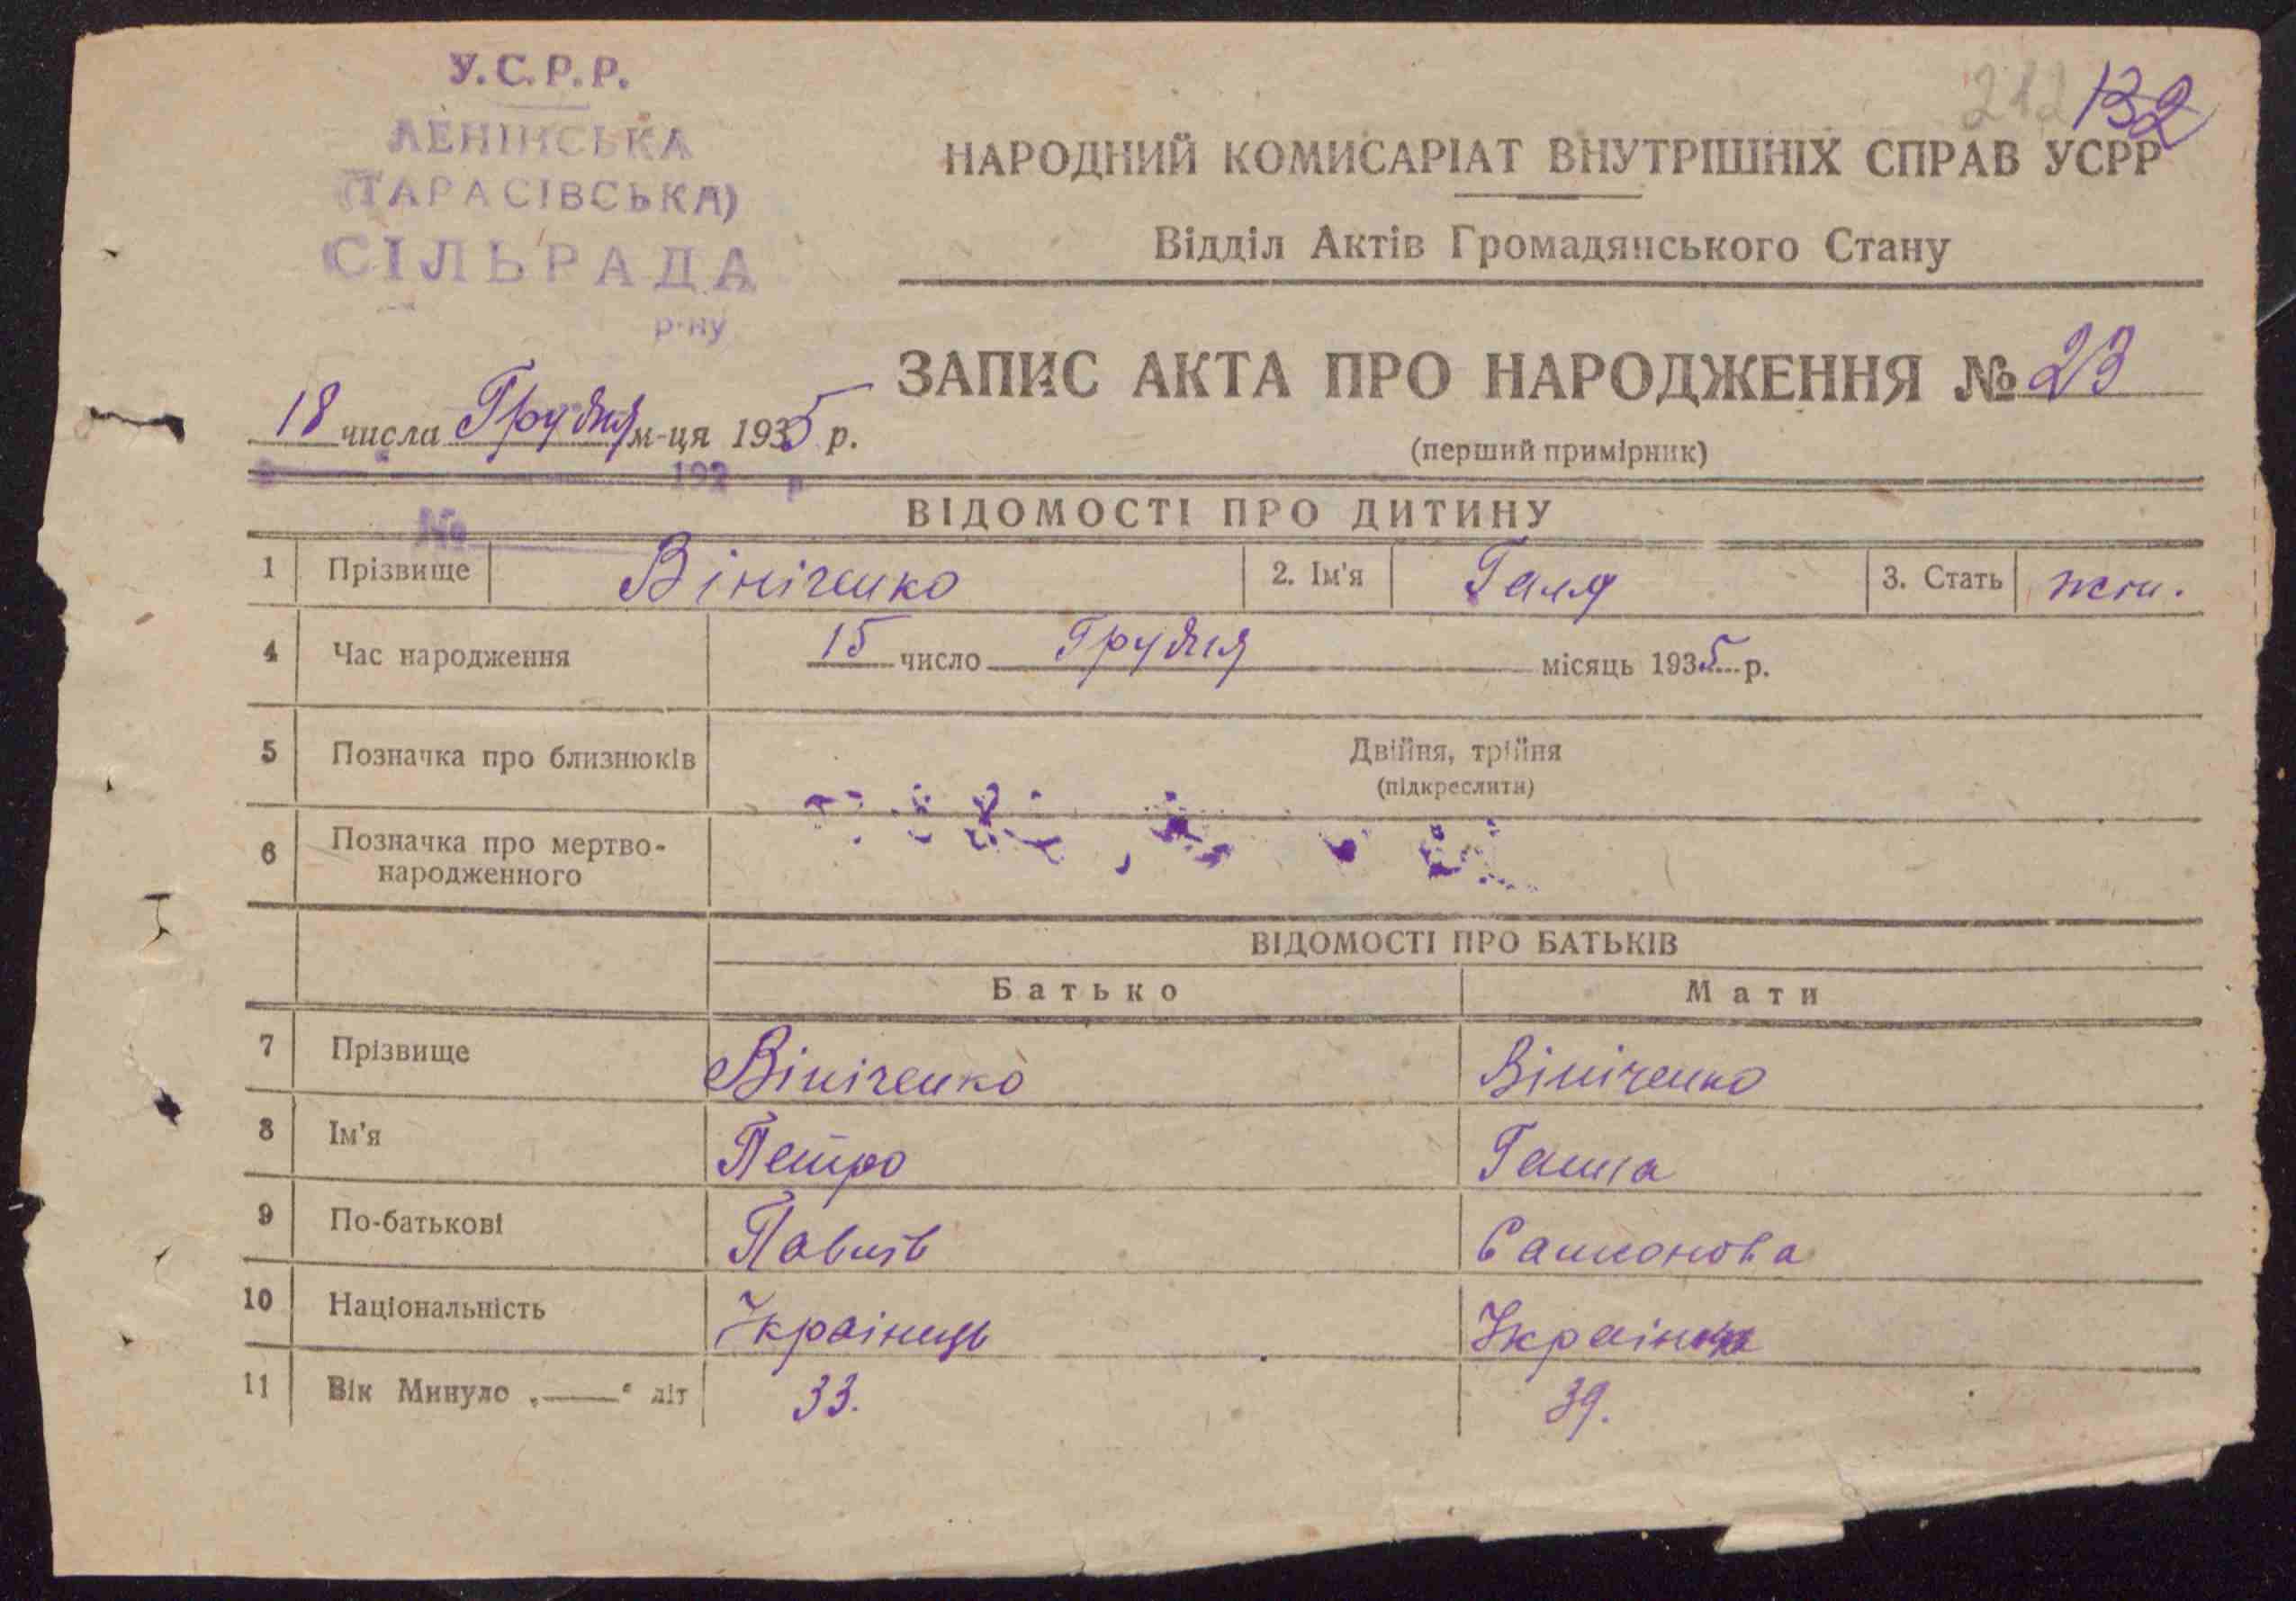 У.С.Р.Р.
ЛЕНІНСЬКА
(ТАРАСІВСЬКА)
СІЛЬРАДА
р-ну
212 132
НАРОДНИЙ КОМИСАРІАТ ВНУТРІШНІХ СПРАВ УСРР
Відділ Актів Громадянського Стану
ЗАПИС АКТА ПРО НАРОДЖЕННЯ № 23
18 числа Грудня м-ця 1935 р.
(перший примірник)
192 р
№
ВІДОМОСТІ ПРО ДИТИНУ
1 Прізвище Вініченко 2. Ім'я Галя 3. Стать жін.
4 Час народження 15 число Грудня місяць 1935 р.
5 Позначка про близнюків Двійня, трійня
(підкреслити)
6 Позначка про мертво-
народженного
ВІДОМОСТІ ПРО БАТЬКІВ
Батько Мати
7 Прізвище Вініченко Вініченко
8 Ім'я Петро Ганна
9 По-батькові Павлів
10 Національність Українець Українка
11 Вік Минуло „—“ літ 33. 39.